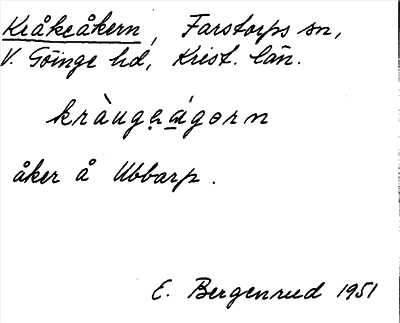 Kråkeåkern, Farstorps sn,
V. Göinge hd, Krist. län.
kràugeágørn
åker å Ubbarp.
E. Bergenrud 1951